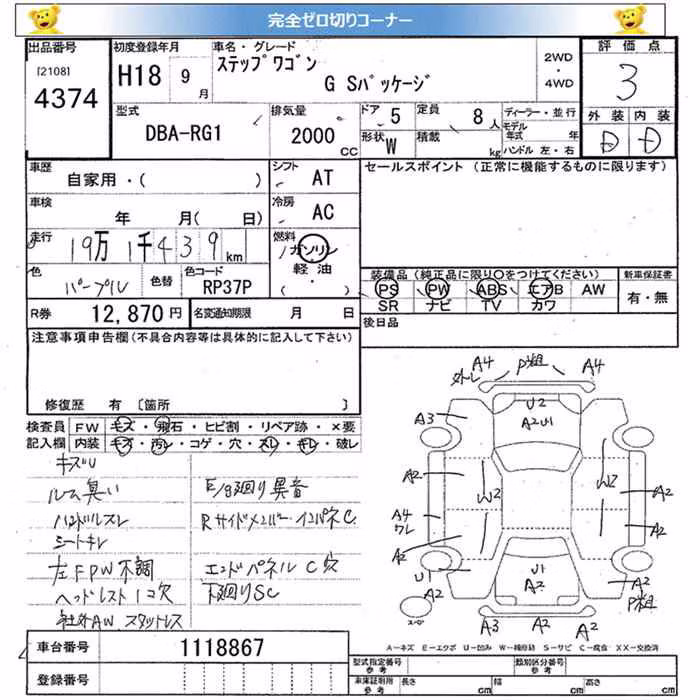 完全ゼロ切りコーナー
出品番号 [2108] 4374
初度登録年月 H18 9月
車名・グレード ステップワゴン G Sパッケージ
2WD・4WD
評価点 3
外装 D 内装 D
型式 DBA-RG1
排気量 2000 CC
ドア 5
形状 W
定員 8人
積載 kg
ディーラー・並行
モデル年式 年
ハンドル 左・右
車歴 自家用・( )
シフト AT
セールスポイント (正常に機能するものに限ります)
車検 年 月( 日)
冷房 AC
走行 19万1千439km
燃料 ガソリン 軽油 ・( )
色 パープル 色替 色コード RP37P
装備品(純正品に限り○をつけてください) 新車保証書
PS PW ABS エアB AW 有・無
SR ナビ TV カワ
R券 12,870円 名変通知期限 月 日
後日品
注意事項申告欄(不具合内容等は具体的に記入して下さい)
修復歴 有 〔箇所 〕
検査員 FW キズ・飛石・ヒビ割・リペア跡・×要
記入欄 内装 キズ・汚レ・コゲ・穴・スレ・キレ・破レ
キズU
ルーム臭い E/g廻り異音
ハンドルスレ Rサイドメンバー・インパネC
シートキレ
左FPW不調 エンドパネルC穴
ヘッドレスト1コ欠 下廻りSC
社外AW スタッドレス
A4 P粗 A4
外レ
U2
A3 A2U1
A2 W2 W2 A2
A4
ワレ A2
A2
U1 U1 A2
A2 A2 P粗
スペア A3 A2 A2
A－キズ E－エクボ U－凹み W－補修跡 S－サビ C－腐食 XX－交換済
車台番号 1118867
登録番号
型式指定番号 参考 類別区分番号 参考
車庫証明用 参考 長さ cm 幅 cm 高さ cm